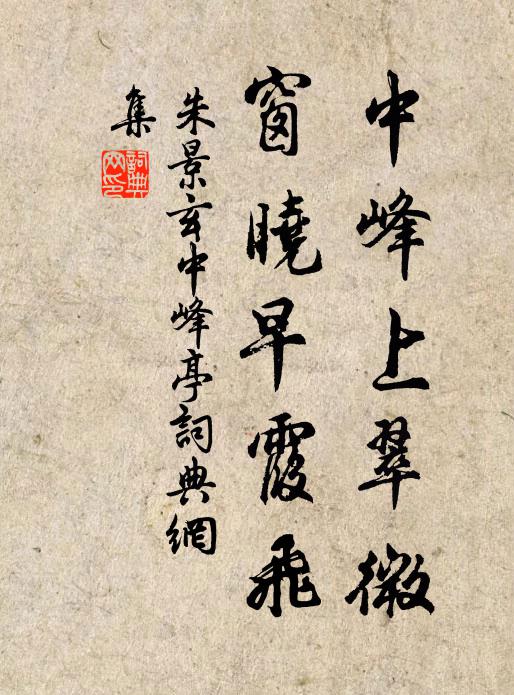 中峰上翠微
窗曉早霞飛
朱景玄中峰亭詞典網
集
詞典網印